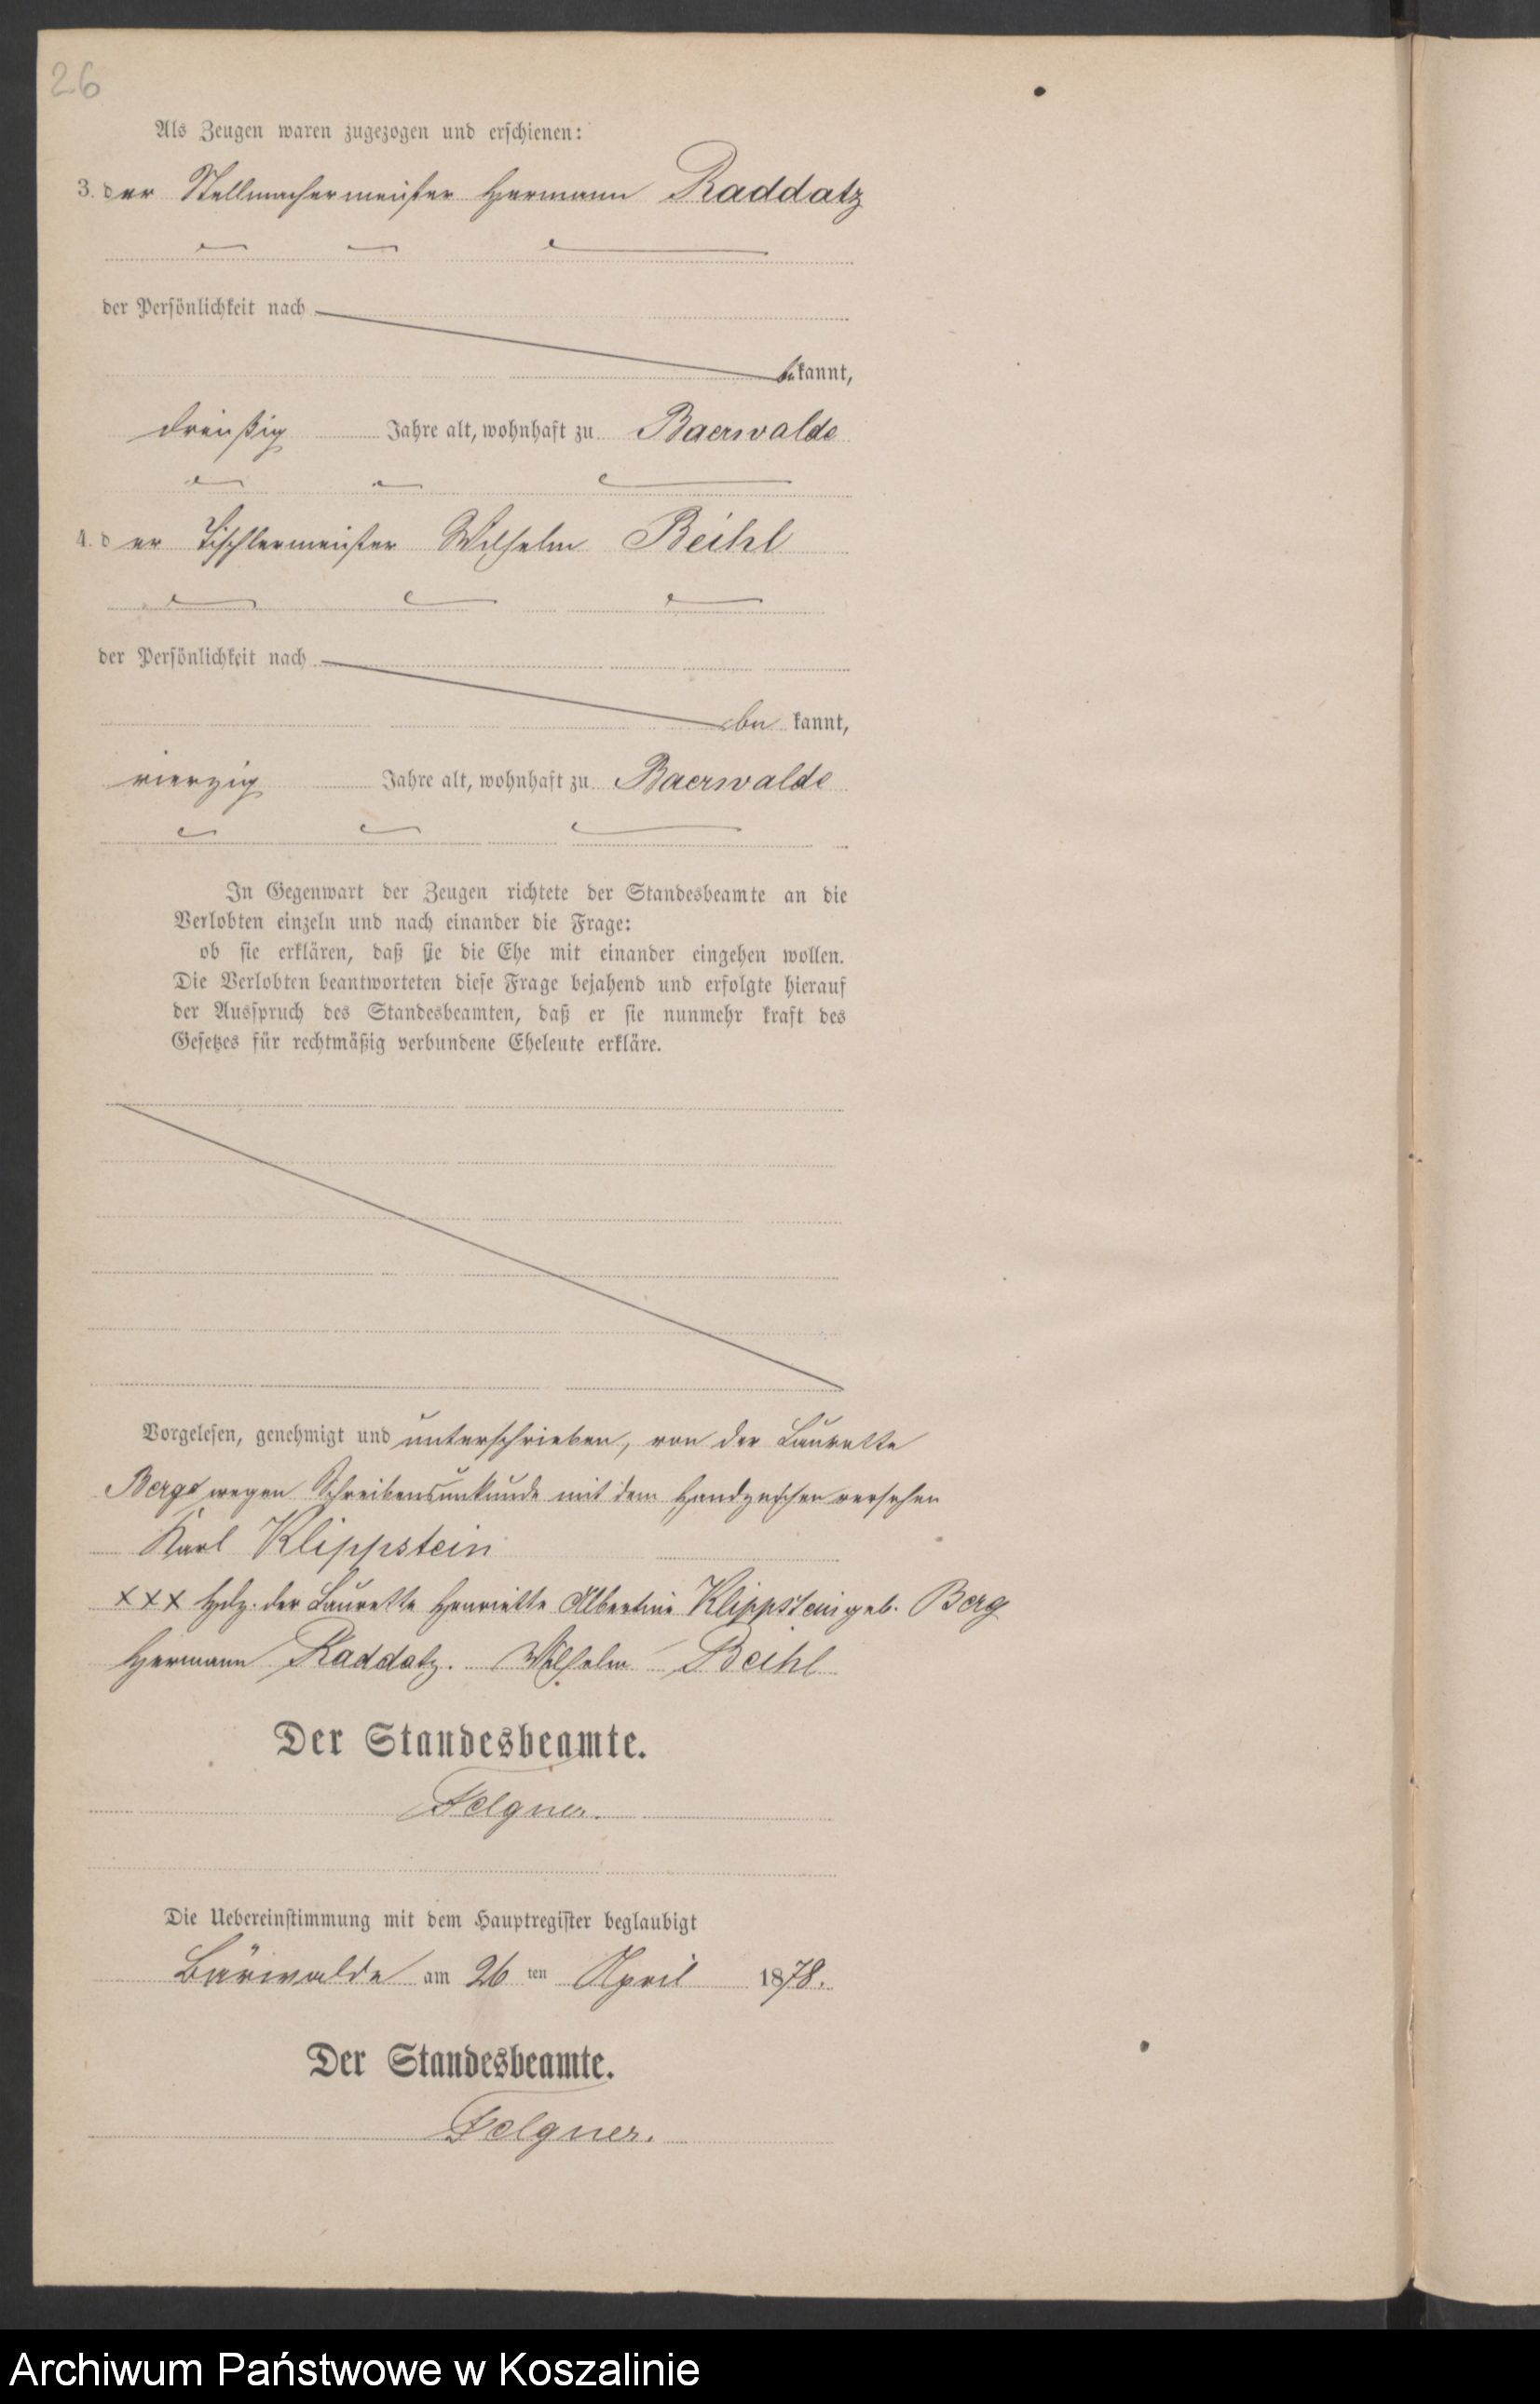 26
Als Zeugen waren zugezogen und erschienen:
3. der Stellmachermeister Hermann Raddatz
der Persönlichkeit nach
bekannt,
dreißig Jahre alt, wohnhaft zu Baerwalde
4. der Tischlermeister Wilhelm Beihl
der Persönlichkeit nach
be kannt,
vierzig Jahre alt, wohnhaft zu Baerwalde
In Gegenwart der Zeugen richtete der Standesbeamte an die
Verlobten einzeln und nach einander die Frage:
ob sie erklären, daß sie die Ehe mit einander eingehen wollen.
Die Verlobten beantworteten diese Frage bejahend und erfolgte hierauf
der Ausspruch des Standesbeamten, daß er sie nunmehr kraft des
Gesetzes für rechtmäßig verbundene Eheleute erkläre.
Vorgelesen, genehmigt und unterschrieben, von der Laurette
Berg wegen Schreibensunkunde mit dem Handzeichen versehen
Karl Klippstein
XXX Hdz. der Laurette Henriette Albertine Klippstein geb. Berg
Hermann Raddatz. Wilhelm Beihl
Der Standesbeamte.
Felgner.
Die Uebereinstimmung mit dem Hauptregister beglaubigt
Bärwalde am 26 ten April 1878.
Der Standesbeamte.
Felgner.
Archiwum Państwowe w Koszalinie